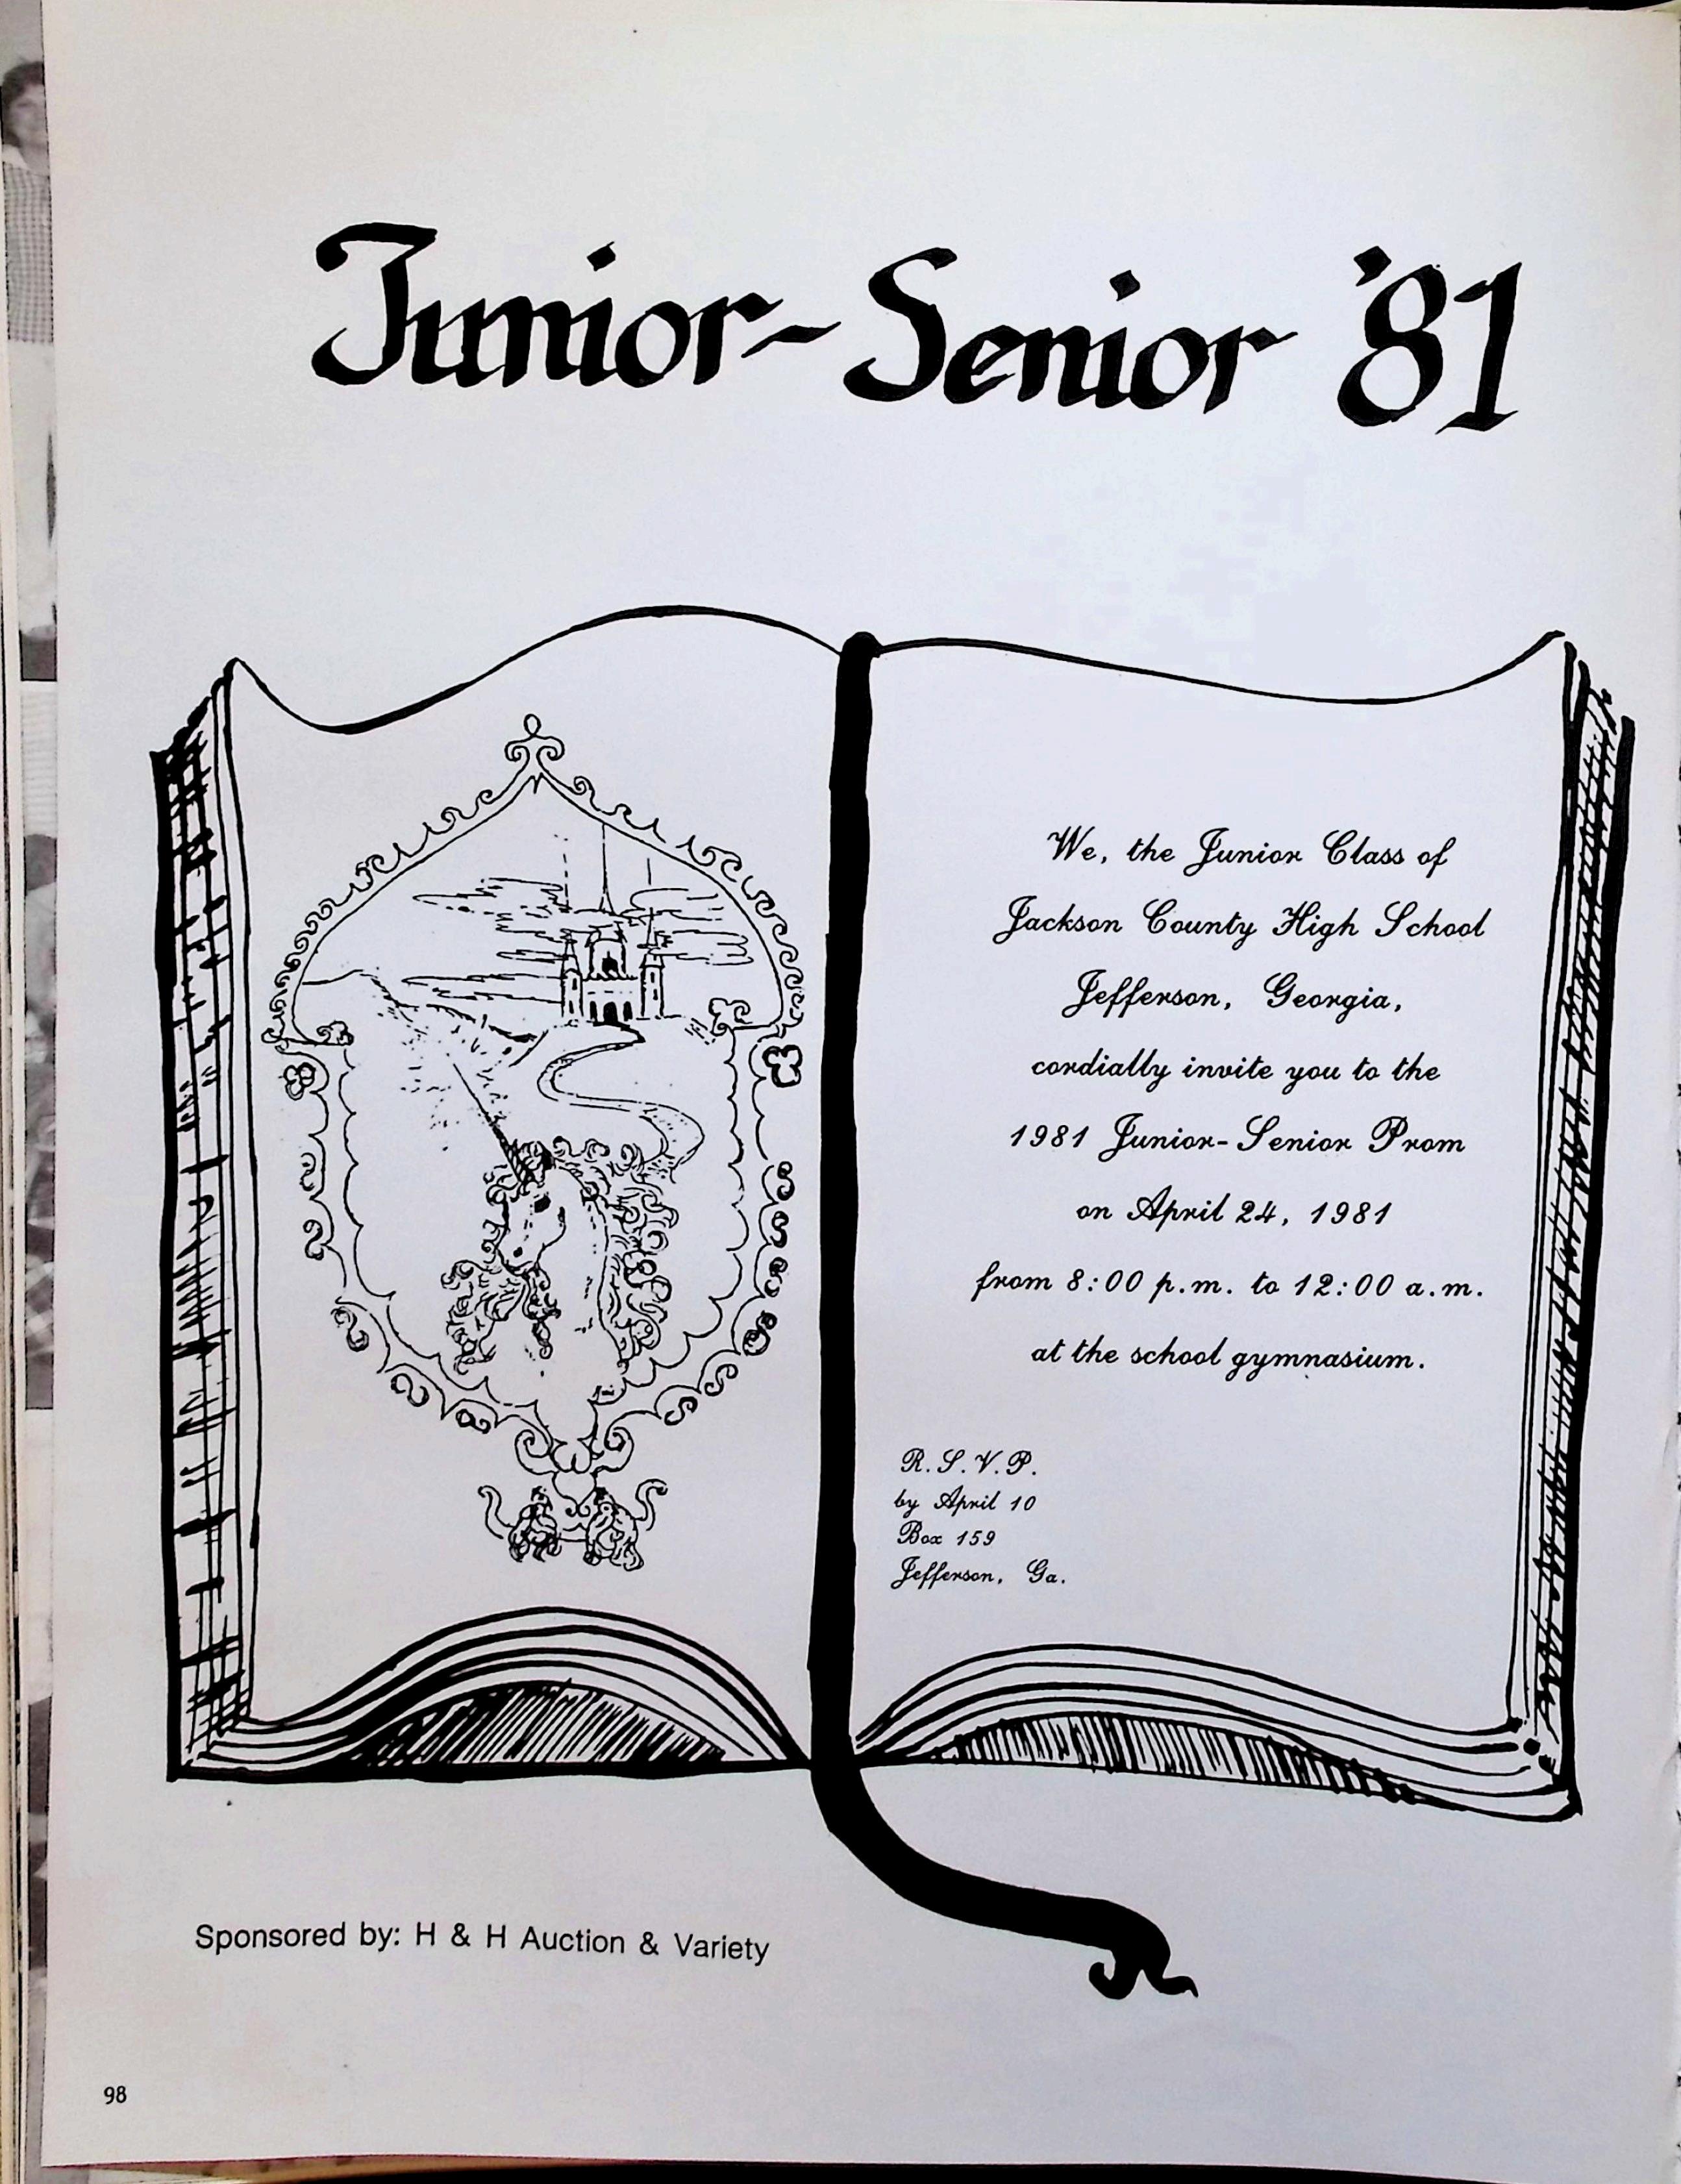 Junior-Senior '81
We, the Junior Class of
Jackson County High School
Jefferson, Georgia,
cordially invite you to the
1981 Junior-Senior Prom
on April 24, 1981
from 8:00 p.m. to 12:00 a.m.
at the school gymnasium.
R.S.V.P.
by April 10
Box 159
Jefferson, Ga.
Sponsored by: H & H Auction & Variety
98